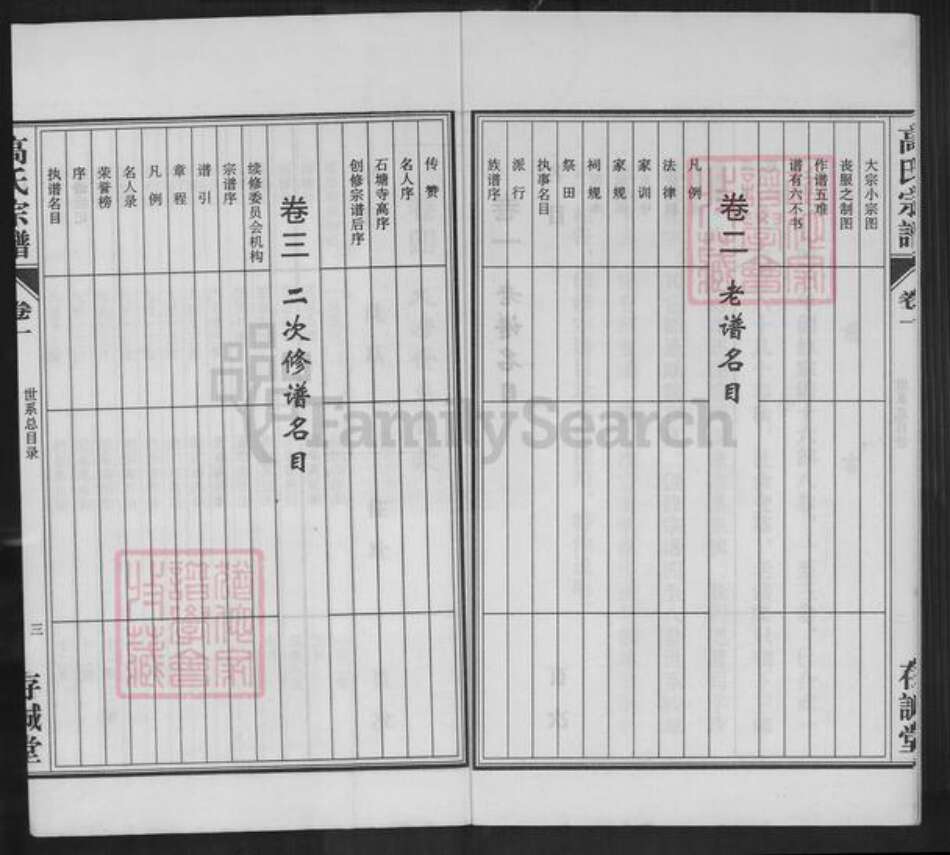 高氏宗譜
卷一
存誠堂
大宗小宗图
丧服之制图
作谱五难
谱有六不书
卷二 老谱名目
凡例
法律
家训
家规
祠规
祭田
执事名目
派行
族谱序
传赞
名人序
石塘寺高序
创修宗谱后序
卷三 二次修谱名目
续修委员会机构
宗谱序
谱引
章程
凡例
名人录
荣誉榜
序
执谱名目
高氏宗譜
卷一
世系总目录
三
存誠堂
FamilySearch